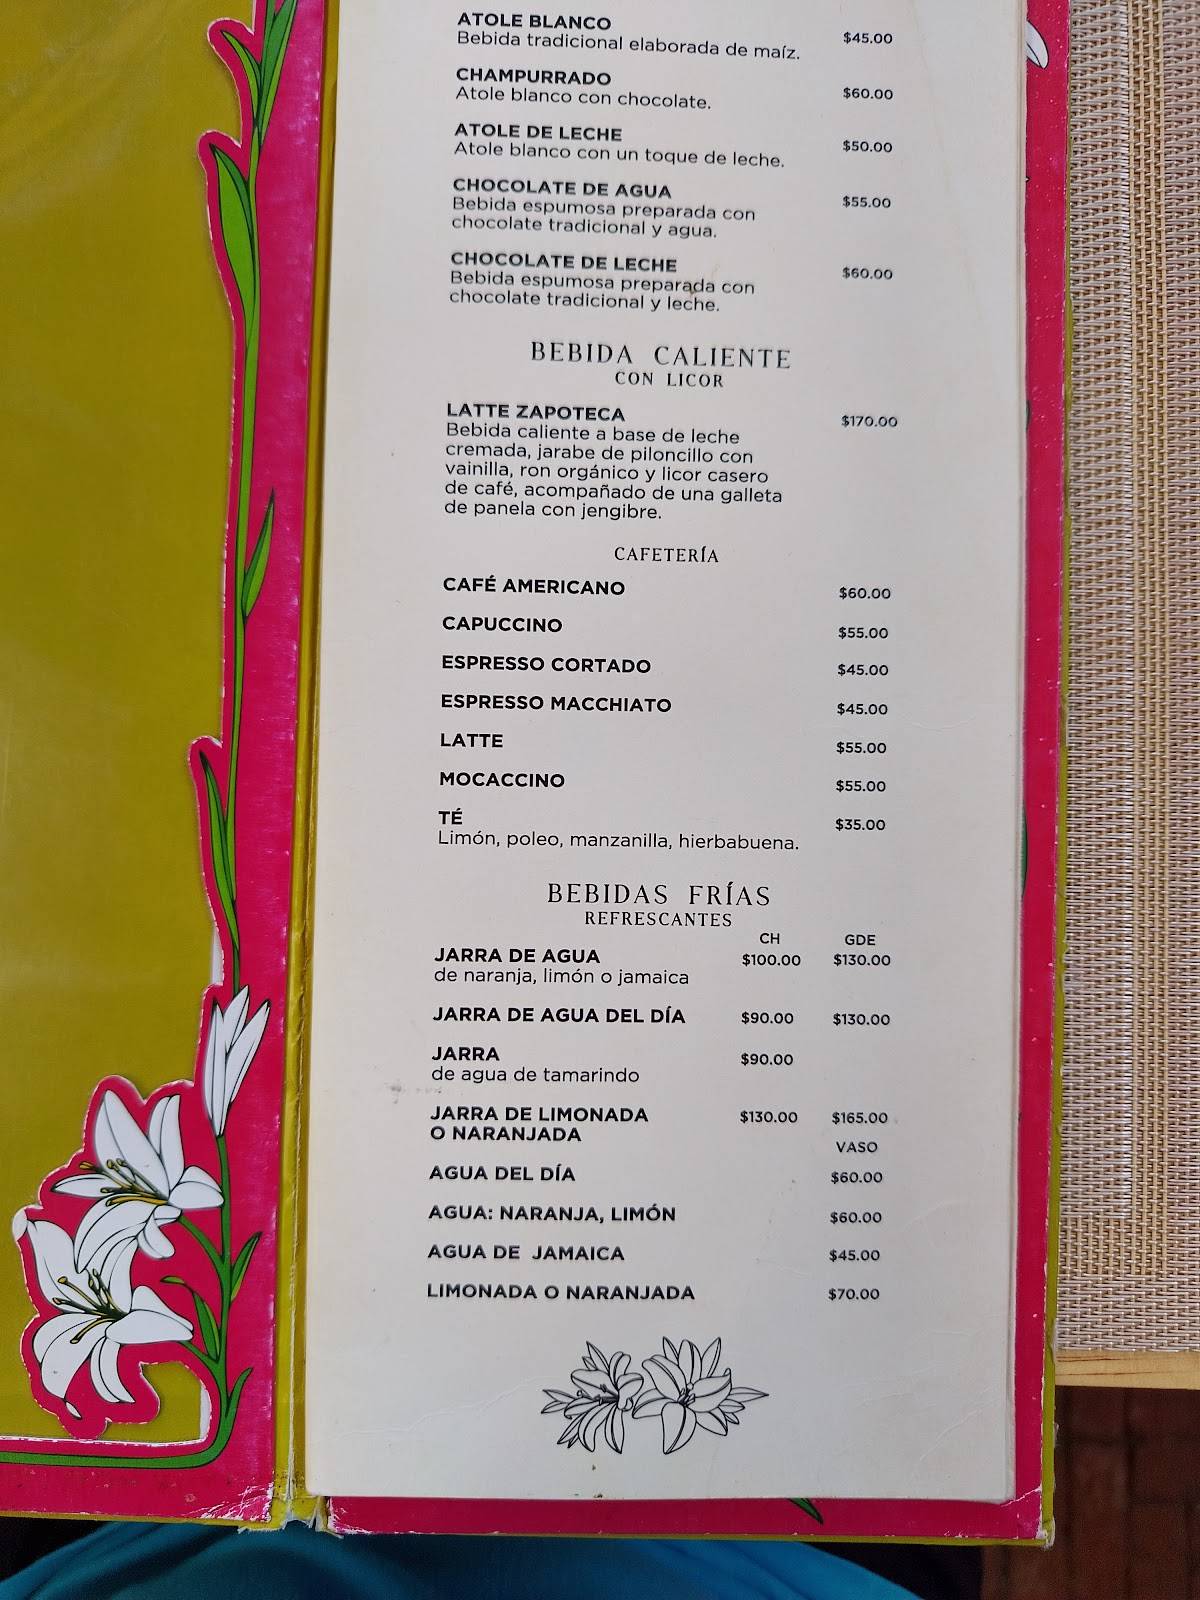 ATOLE BLANCO
Bebida tradicional elaborada de maíz. $45.00
CHAMPURRADO
Atole blanco con chocolate. $60.00
ATOLE DE LECHE
Atole blanco con un toque de leche. $50.00
CHOCOLATE DE AGUA $55.00
Bebida espumosa preparada con
chocolate tradicional y agua.
CHOCOLATE DE LECHE $60.00
Bebida espumosa preparada con
chocolate tradicional y leche.
BEBIDA CALIENTE
CON LICOR
LATTE ZAPOTECA $170.00
Bebida caliente a base de leche
cremada, jarabe de piloncillo con
vainilla, ron orgánico y licor casero
de café, acompañado de una galleta
de panela con jengibre.
CAFETERÍA
CAFÉ AMERICANO $60.00
CAPUCCINO $55.00
ESPRESSO CORTADO $45.00
ESPRESSO MACCHIATO $45.00
LATTE $55.00
MOCACCINO $55.00
TÉ $35.00
Limón, poleo, manzanilla, hierbabuena.
BEBIDAS FRÍAS
REFRESCANTES
CH GDE
JARRA DE AGUA $100.00 $130.00
de naranja, limón o jamaica
JARRA DE AGUA DEL DÍA $90.00 $130.00
JARRA $90.00
de agua de tamarindo
JARRA DE LIMONADA $130.00 $165.00
O NARANJADA
VASO
AGUA DEL DÍA $60.00
AGUA: NARANJA, LIMÓN $60.00
AGUA DE JAMAICA $45.00
LIMONADA O NARANJADA $70.00